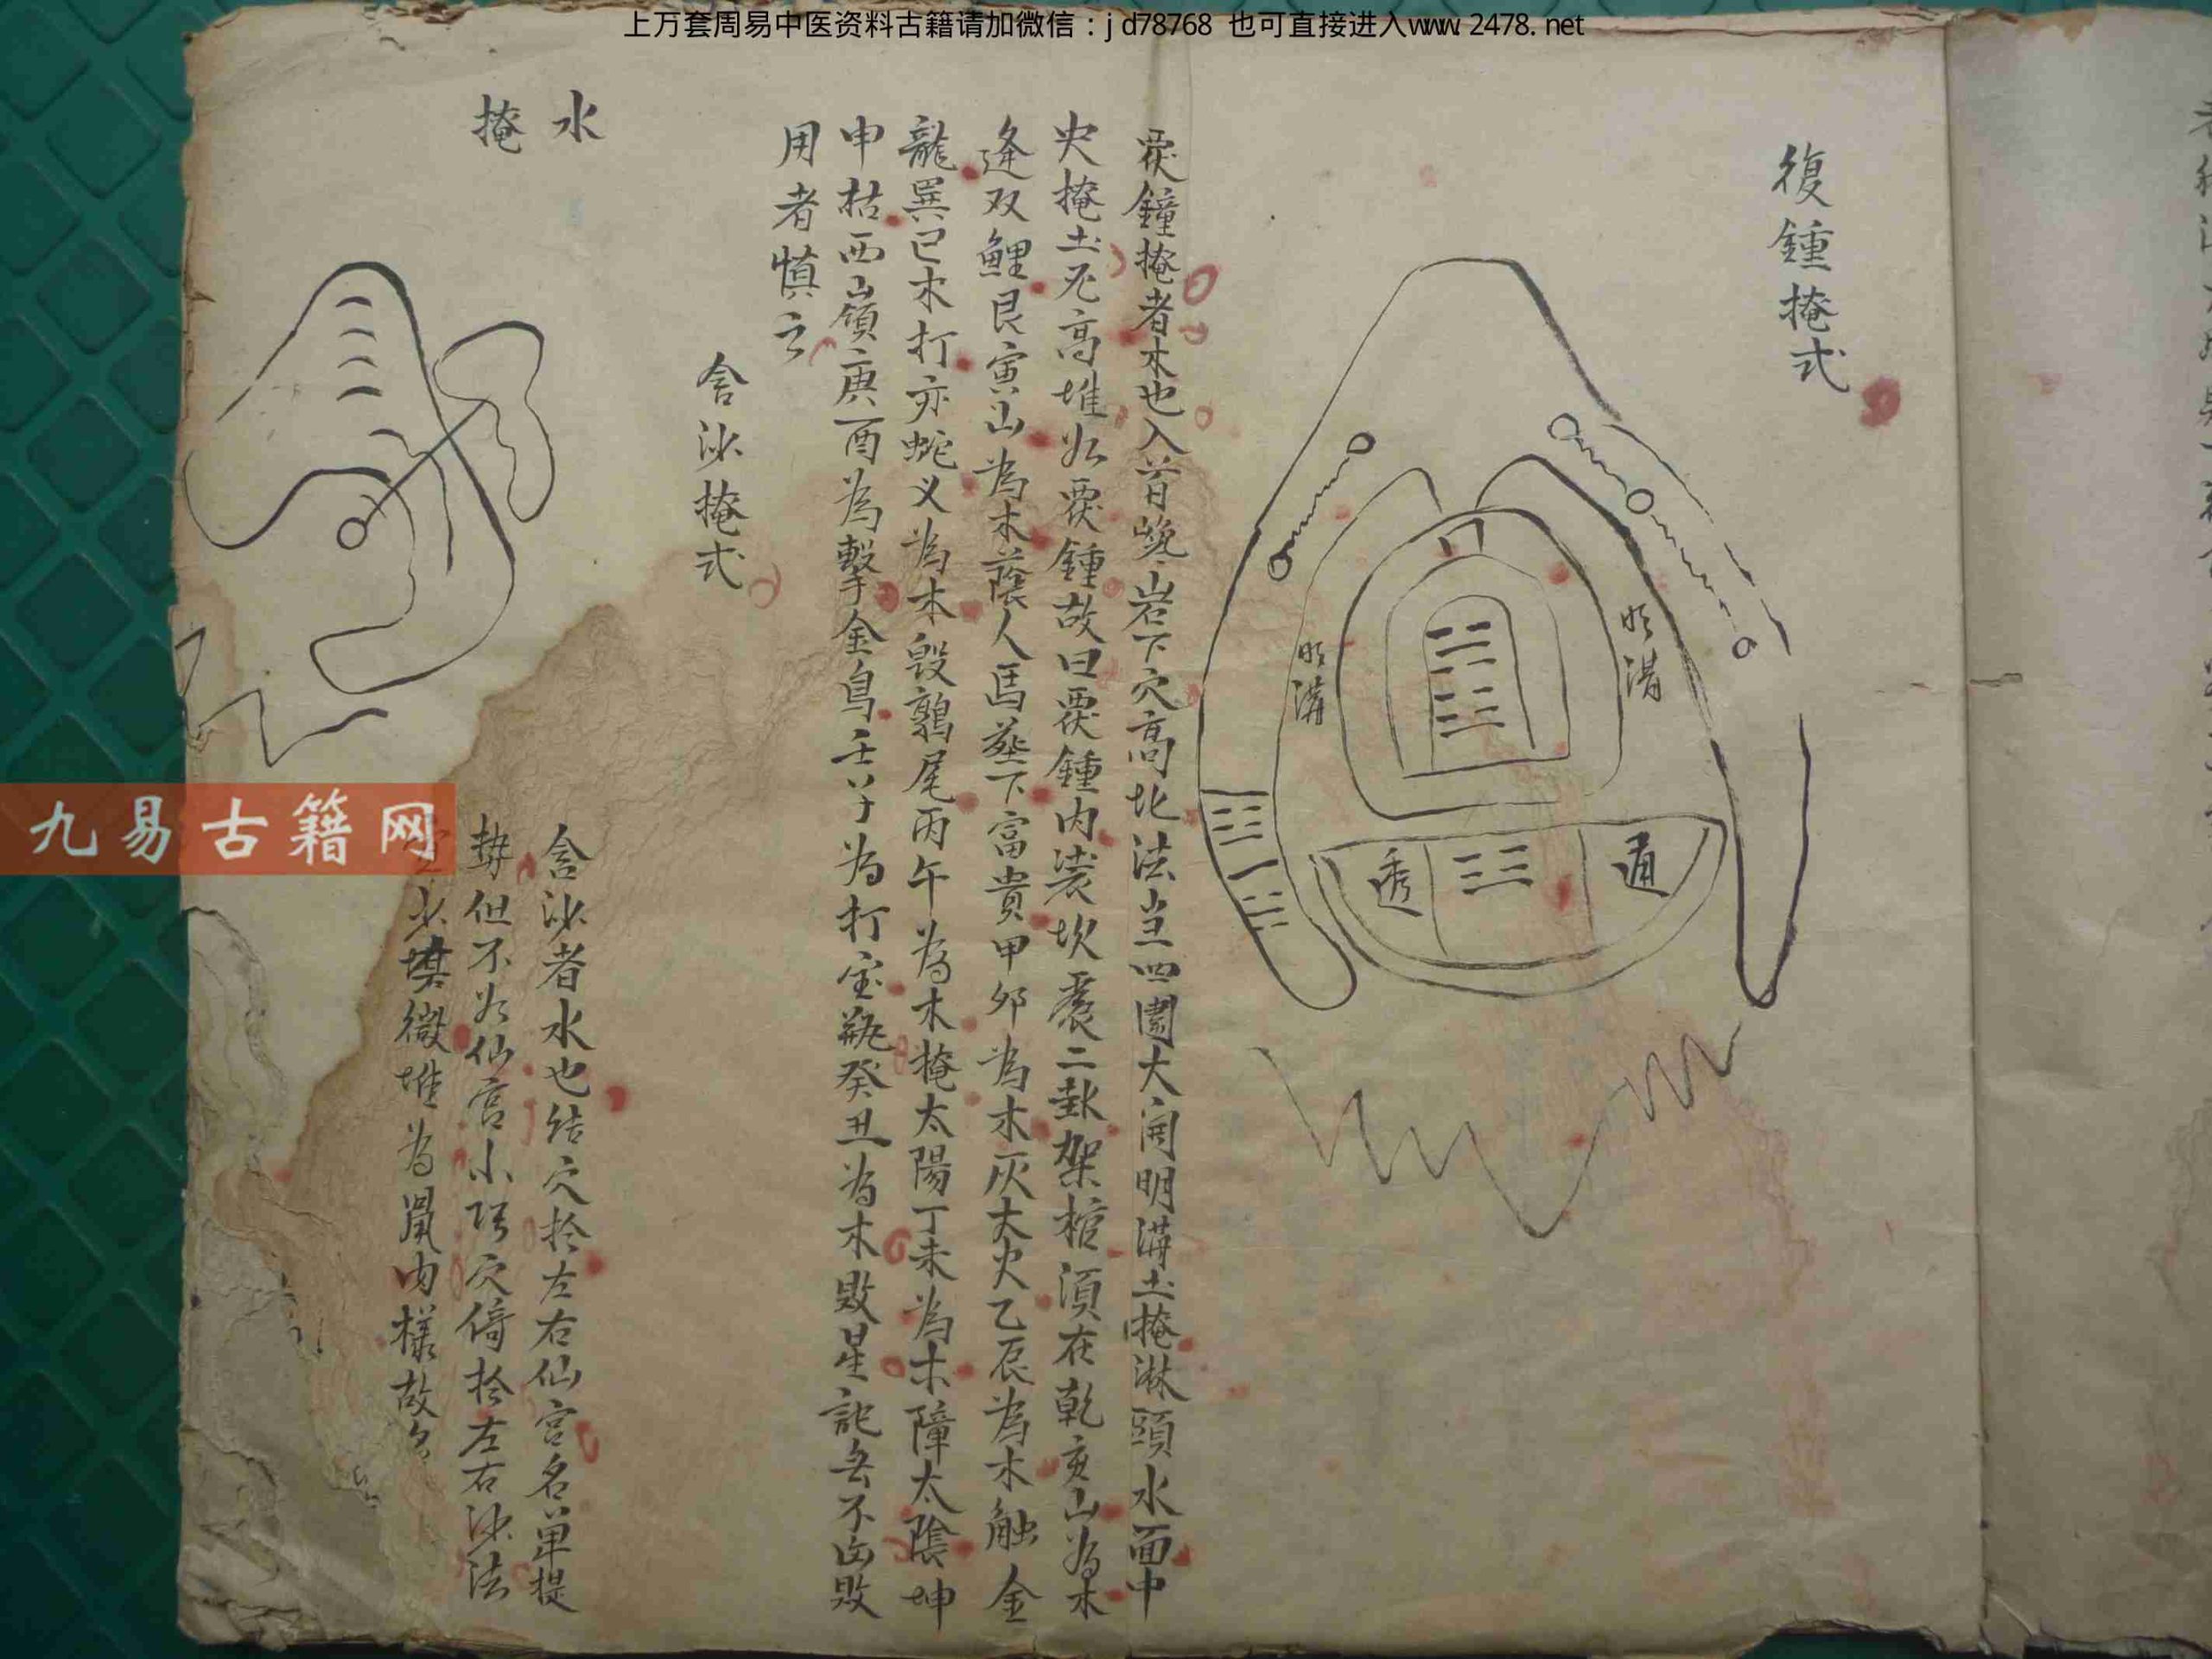 上万套周易中医资料古籍请加微信：jd78768 也可直接进入www.2478.net
復鍾掩式
明溝
明溝
透
道
覆鐘掩者木也入首巉岩下穴高北法当四圍大開明溝土掩淋頭水面中
央掩土充高堆如覆鍾故曰覆鍾内裝坎震二卦架棺須在乾亥山為木
逢双鯉艮寅山為木蔭人馬塟下富貴甲卯為木灰大火乙辰為木触金
龍巽巳木打亦蛇义為木毀鶉尾丙午為木掩太陽丁未為木障太陰坤
申枯西山嶺庚酉為擊金烏壬子為打宝瓶癸丑為木敗星記無不凶敗
用者慎之
含沙掩式
水
掩
含沙者水也結穴於左右仙宫名單提
勢但不如仙宫小巧穴倚於左右沙法
少填微堆為鼠肉樣故名
九易古籍网